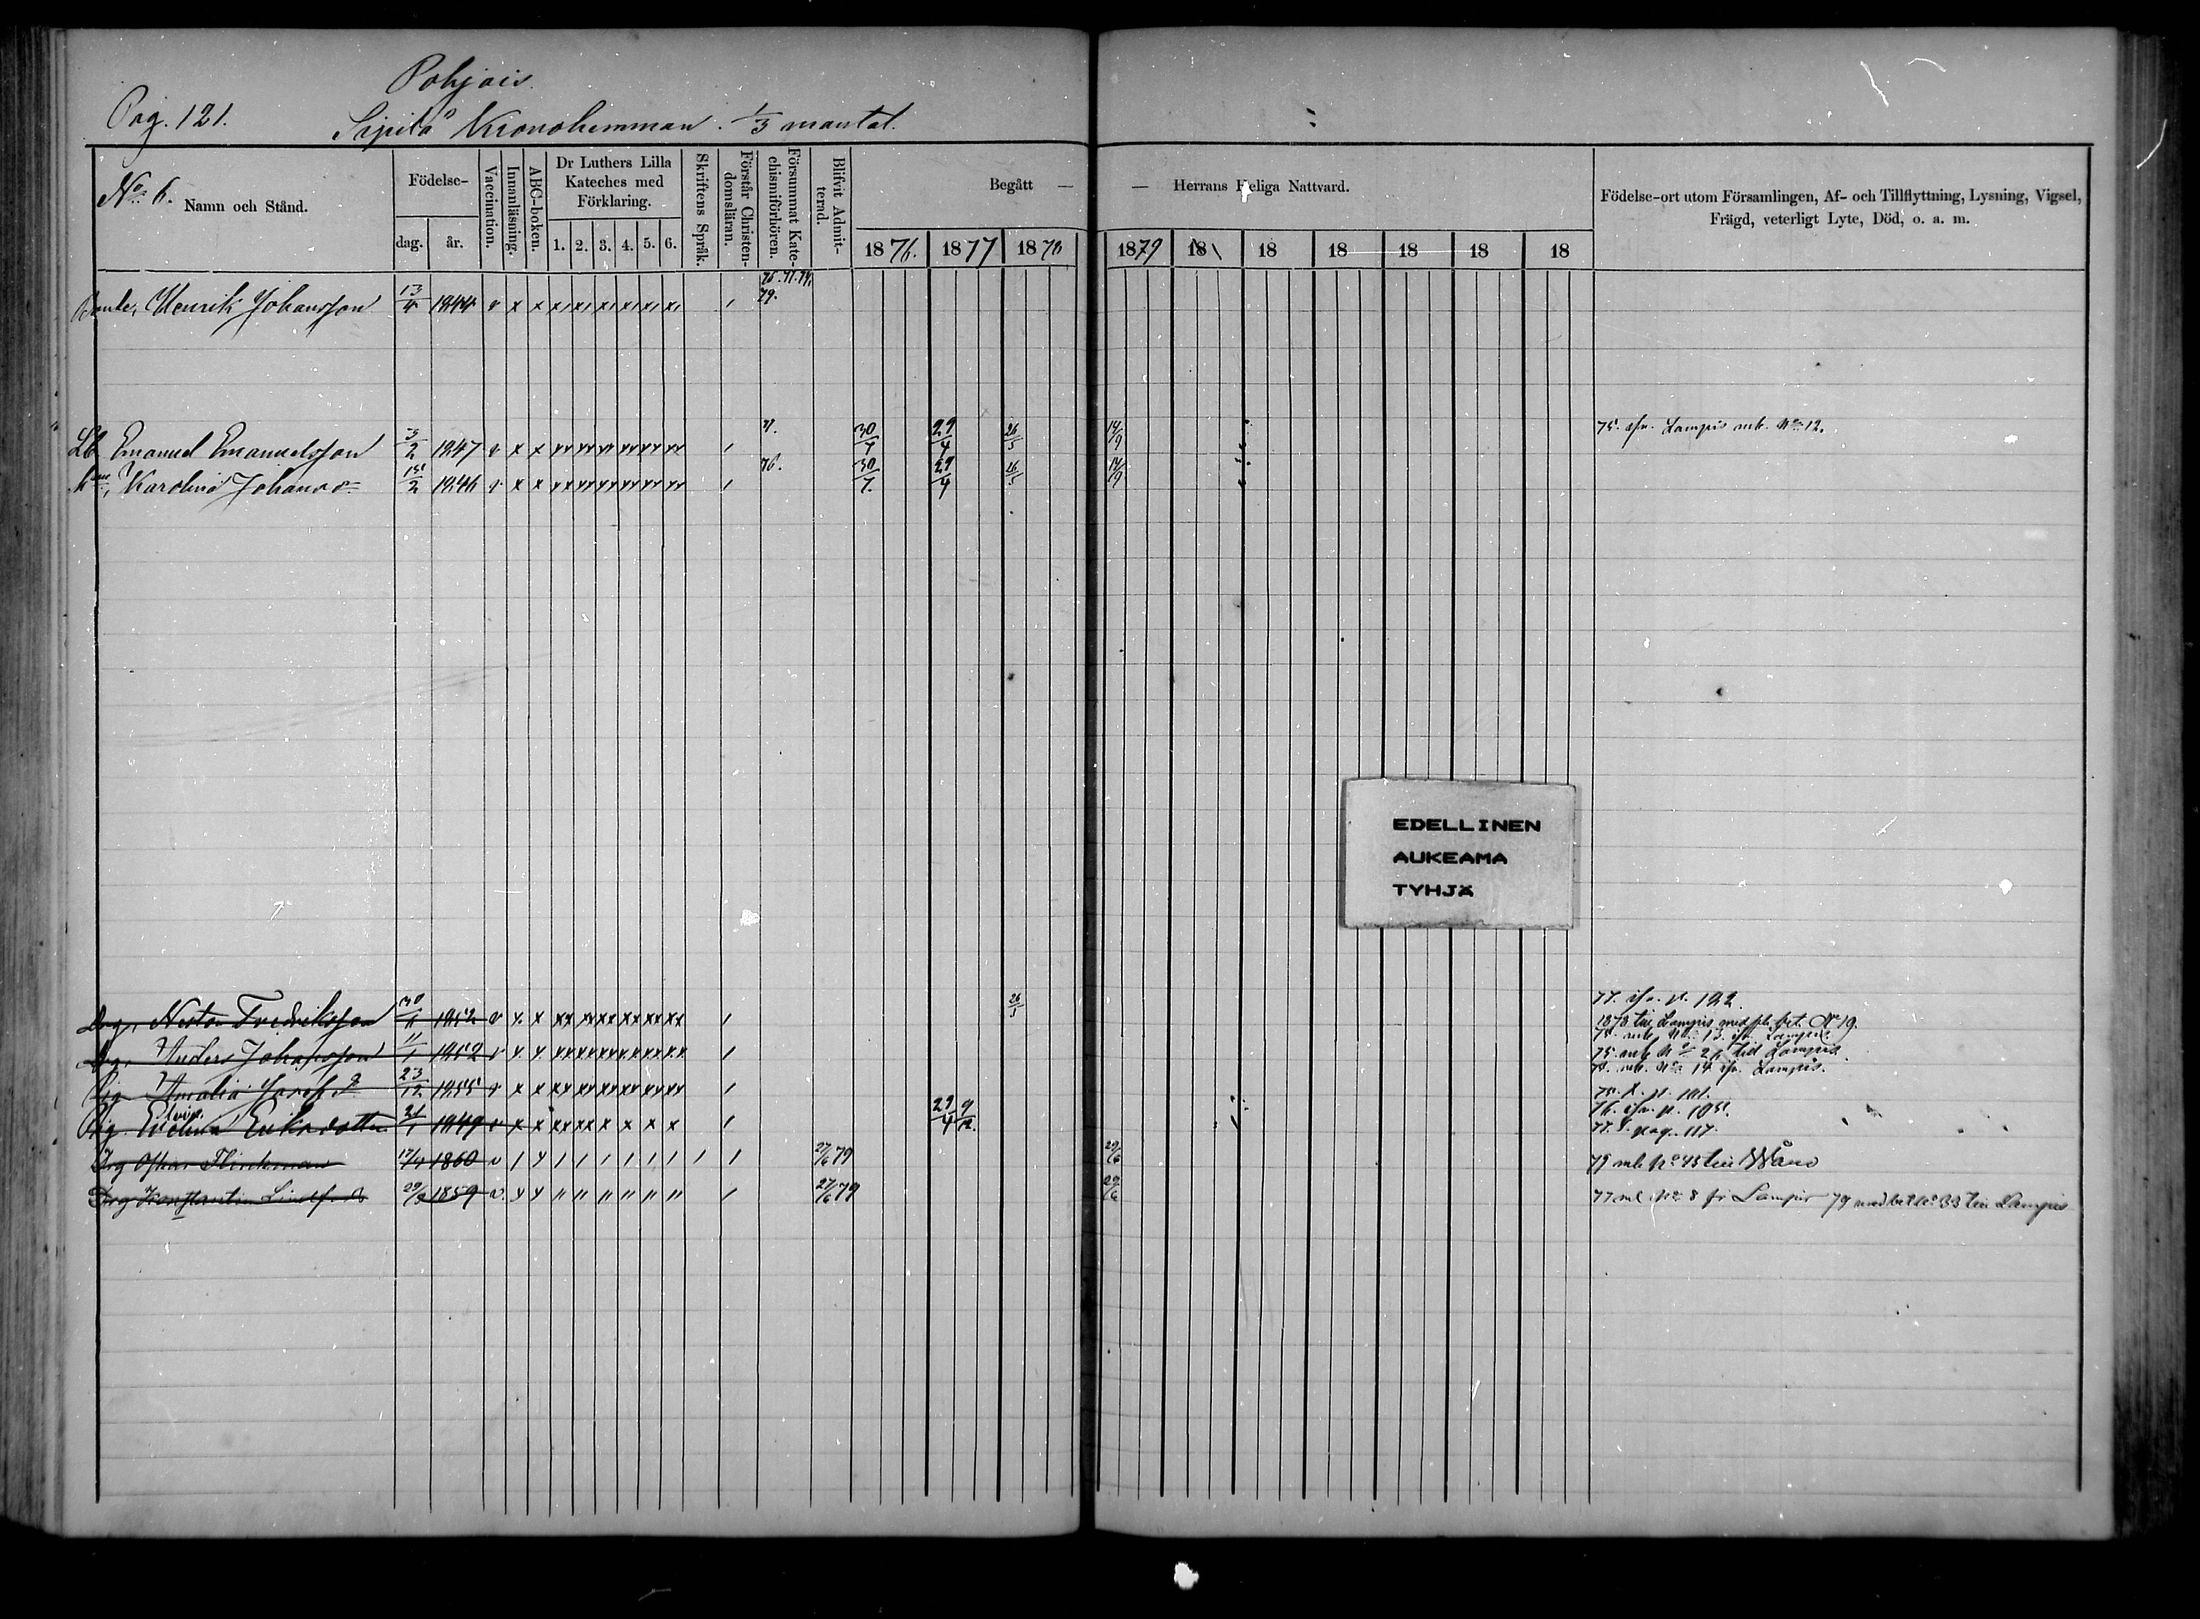 Pohjois.
Pag. 121. Sipilä Kronohemman. 1/3 mantal.
No 6. Namn och Stånd.
Födelse-
dag. år.
Vaccination.
Innanläsning.
ABC-boken.
Dr Luthers Lilla Kateches med Förklaring.
1. 2. 3. 4. 5. 6.
Skriftens Språk.
Förstår Christendomsläran.
Försummat Katechismiförhören.
Blifvit Admitterad.
Begått — — Herrans Heliga Nattvard.
1876. 1877 1878 1879 18 18 18 18 18 18
Födelse-ort utom Församlingen, Af- och Tillflyttning, Lysning, Vigsel,
Frägd, veterligt Lyte, Död, o. a. m.
76. 77. 78.
79.
Henrik Johansson 13/4 1844 v x x x, x, x, x, x, x, /
Emanuel Emanuelsson 3/2 1847 v x x xx xx xx xx xx xx / 30/7 29/4 26/5 14/9 75. ifr. Lampis mb. No 12.
Karolina Johansd 1846 v x x xx xx xx xx xx xx / 76. 30/7. 29/4 26/5 14/9
Drg. Nestor Fredriksson 1852 v x x xx xx xx xx xx xx / 26/5 77. ifr. p. 122.
1878 till Lampis med fl. bet. No 19.
Drg. Anders Johansson 11/1 1852 v x x xx xx xx xx xx xx / 75. mb. No 13. ifr. Lampis.
75. mb No 21 till Lampis.
Pig. Amalia Josefsd 23/12 1855 v x x xx xx xx xx xx xx / 75. mb. No 14 ifr. Lampis.
Pig. Evelina Eriksdotter 21/1 1849 v x x xx xx x x x x / 29/4 9/12. 76. ifr. p.
77. f. pag. 117.
Drg Oskar Flinkman 17/4 1860 v / / / / / / / / / 27/6 79 29/6 79 mb No 43 till Wånå
Drg Konstantin 1859 v. 27/6 79 29/6 77 ml No 8 fr Lampis 79 med bet No 33 till Lampis
EDELLINEN
AUKEAMA
TYHJÄ